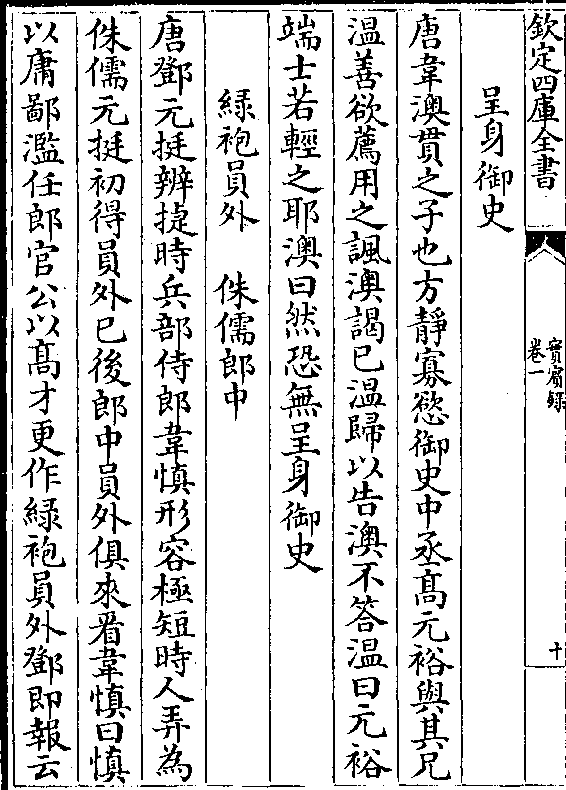 欽定四庫全書
實賓錄
卷一
十
呈身御史
唐韋澳貫之子也方靜寡慾御史中丞髙元裕與其兄
温善欲薦用之諷澳謁已温歸以告澳不答温曰元裕
端士若輕之耶澳曰然恐無呈身御史
緑袍員外　侏儒郎中
唐鄧元挺辨捷時兵部侍郎韋慎形容極短時人弄為
侏儒元挺初得員外已後郎中員外俱來看韋慎曰慎
以庸鄙濫任郎官公以髙才更作緑袍員外鄧即報云